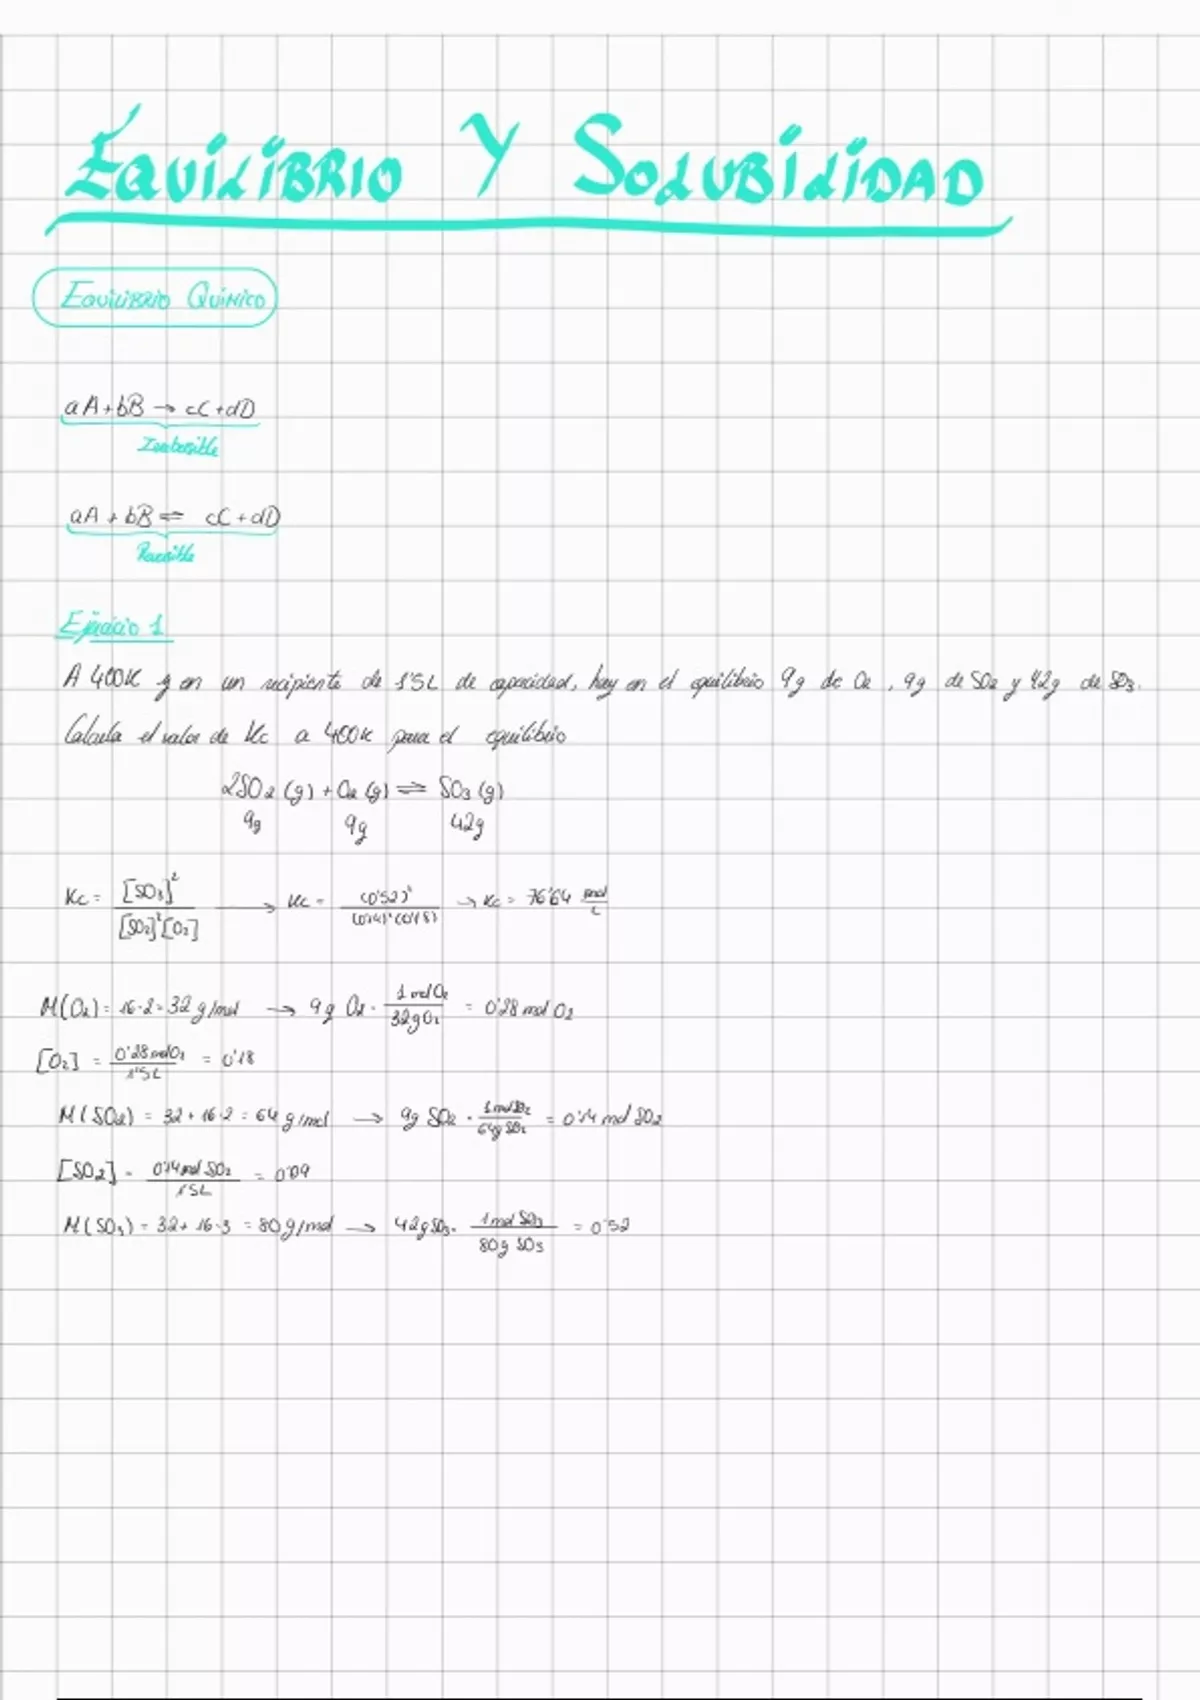 EQUILIBRIO Y SOLUBILIDAD
EQUILIBRIO QUÍMICO
aA + bB → cC + dD
Irreversible
aA + bB ⇌ cC + dD
Reversible
Ejercicio 1
A 400K y en un recipiente de 1'5L de capacidad, hay en el equilibrio 9g de O2, 9g de SO2 y 42g de SO3.
Calcula el valor de Kc a 400K para el equilibrio
2SO2 (g) + O2 (g) ⇌ SO3 (g)
9g 9g 42g
Kc = [SO3]² / [SO2]² [O2] → Kc = (0'52)² / (0'14)² (0'18) → Kc = 76'64 mol/L
M(O2) = 16·2 = 32 g/mol → 9g O2 · 1 mol O2 / 32g O2 = 0'28 mol O2
[O2] = 0'28 mol O2 / 1'5L = 0'18
M(SO2) = 32 + 16·2 = 64 g/mol → 9g SO2 · 1 mol SO2 / 64g SO2 = 0'14 mol SO2
[SO2] = 0'14 mol SO2 / 1'5L = 0'09
M(SO3) = 32 + 16·3 = 80 g/mol → 42g SO3 · 1 mol SO3 / 80g SO3 = 0'52